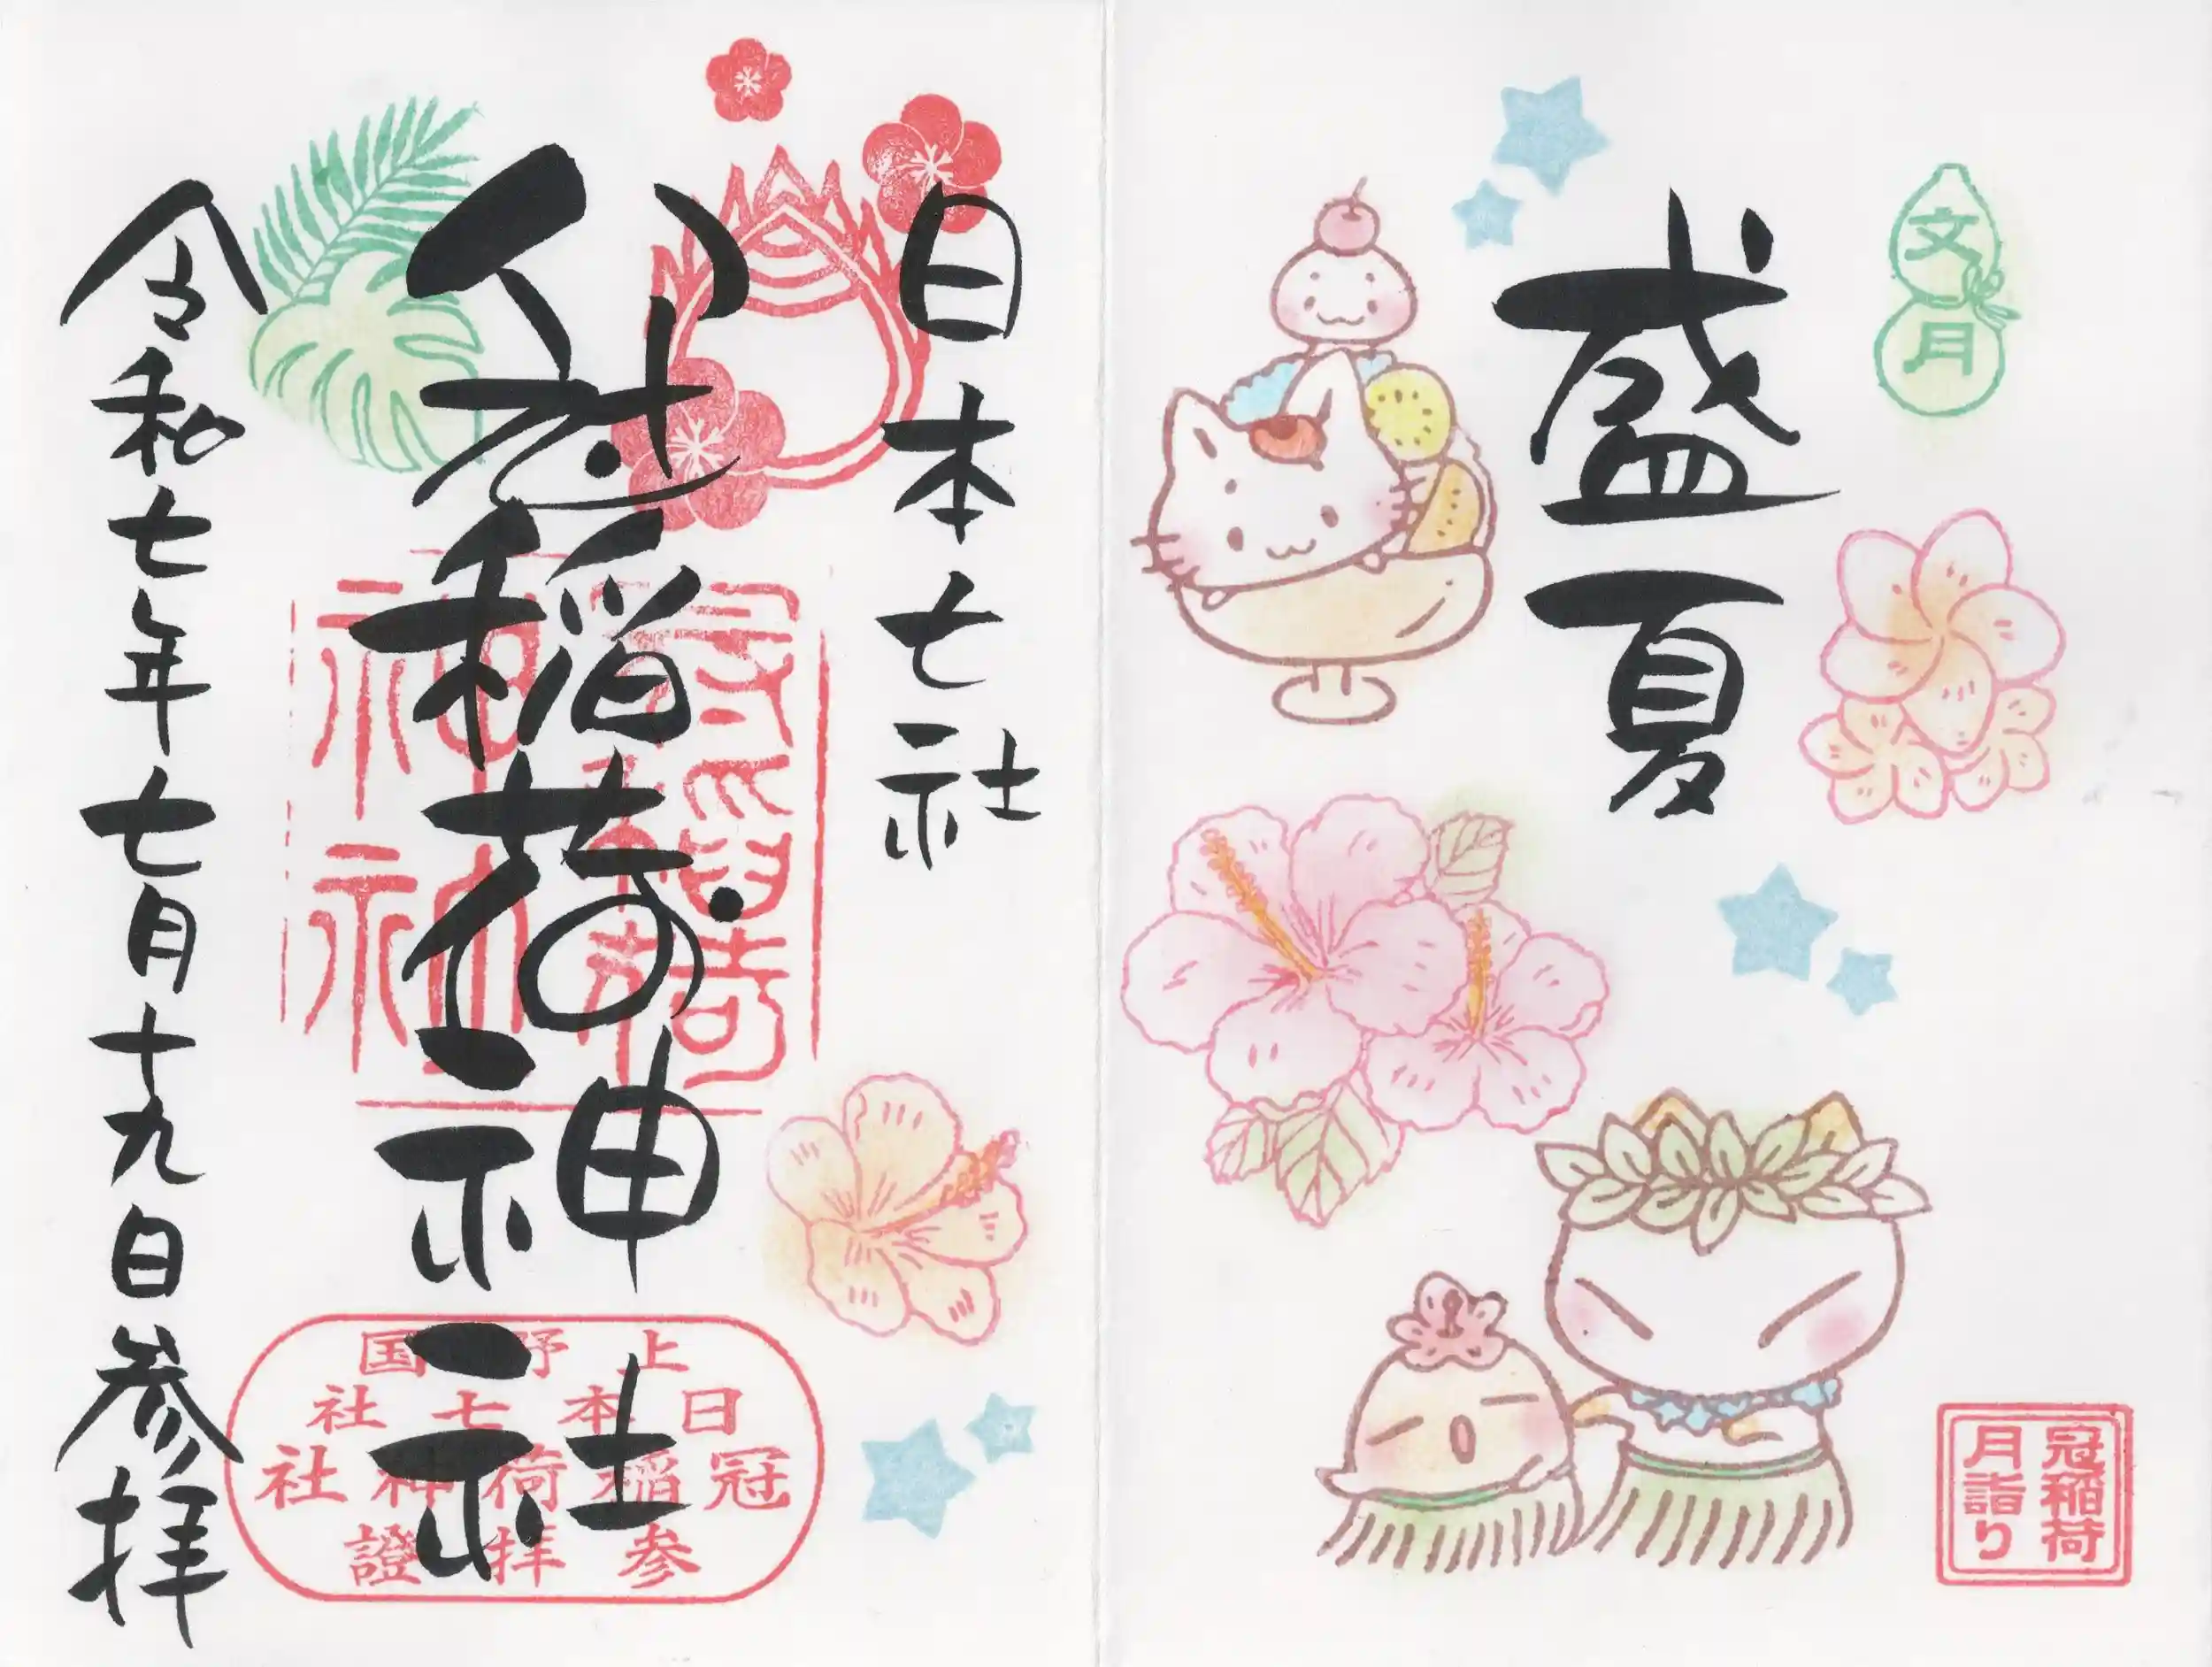 文月
盛夏
冠稲荷
月詣り
日本七社
冠稲荷神社
冠稲荷
神社
上野国
日本七社
冠稲荷神社
参拝證
令和七年七月十九日参拝